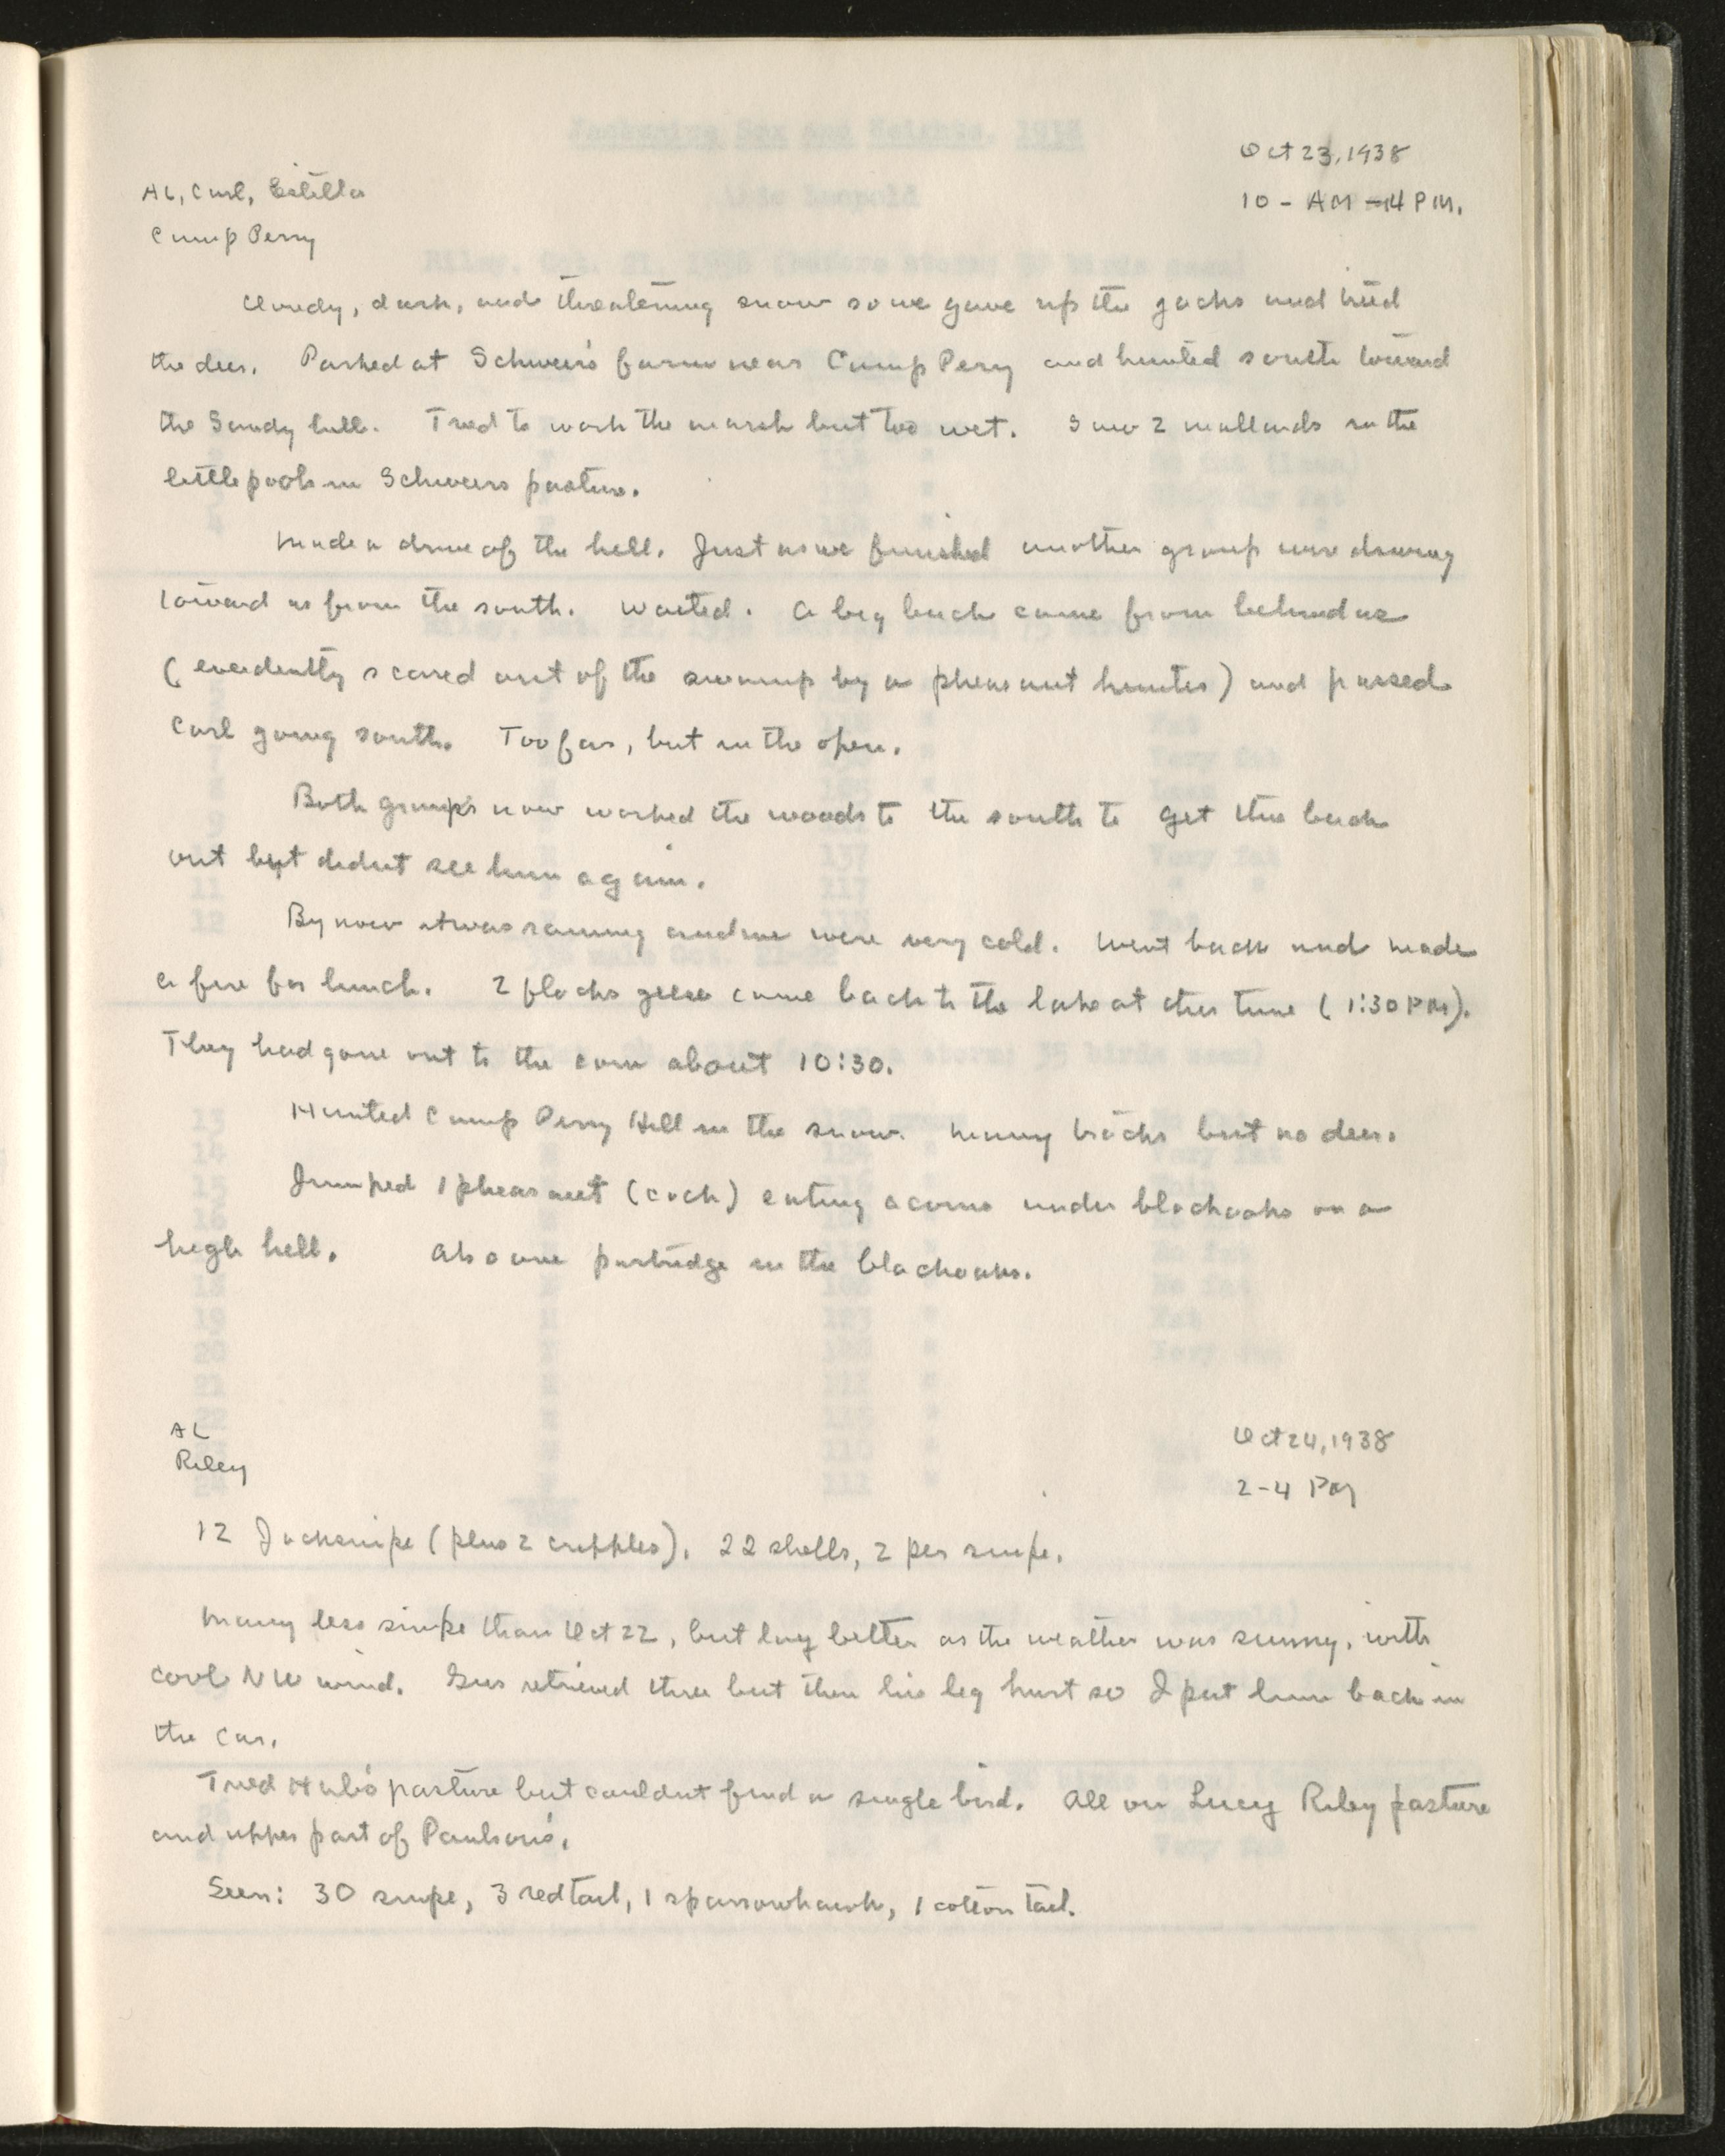 Oct 23, 1938
AL, Carl, Estella
10 - AM - 4 PM.
Camp Perry
Cloudy, dark, and threatening snow so we gave up the jacks and tried
the deer. Parked at Schweers farm near Camp Perry and hunted south toward
the Sandy hill. Tried to work the marsh but too wet. Saw 2 mallards in the
little pools in Schweers pasture.
Made a drive of the hill. Just as we finished another group was driving
toward us from the south. Waited. A big buck came from behind us
(evidently scared out of the swamp by a pheasant hunter) and passed
Carl going south. Too far, but in the open.
Both groups now worked the woods to the south to get the buck
out but didnt see him again.
By now it was raining and we were very cold. Went back and made
a fire for lunch. 2 flocks geese came back to the lake at this time (1:30 PM).
They had gone out to the corn about 10:30.
Hunted Camp Perry Hill in the snow. Many tracks but no deer.
Jumped 1 pheasant (cock) eating acorns under blackoaks on a
high hill. Also one partridge in the blackoaks.
AL
Oct 24, 1938
Riley
2-4 PM
12 Jacksnipe (plus 2 cripples). 22 shells, 2 per snipe.
Many less snipe than Oct 22, but lay better as the weather was sunny, with
cool NW wind. Gus retrieved three but then his leg hurt so I put him back in
the car.
Tried Hub's pasture but couldnt find a single bird. All on Lucy Riley pasture
and upper part of Paulson's.
Seen: 30 snipe, 3 redtail, 1 sparrowhawk, 1 cottontail.